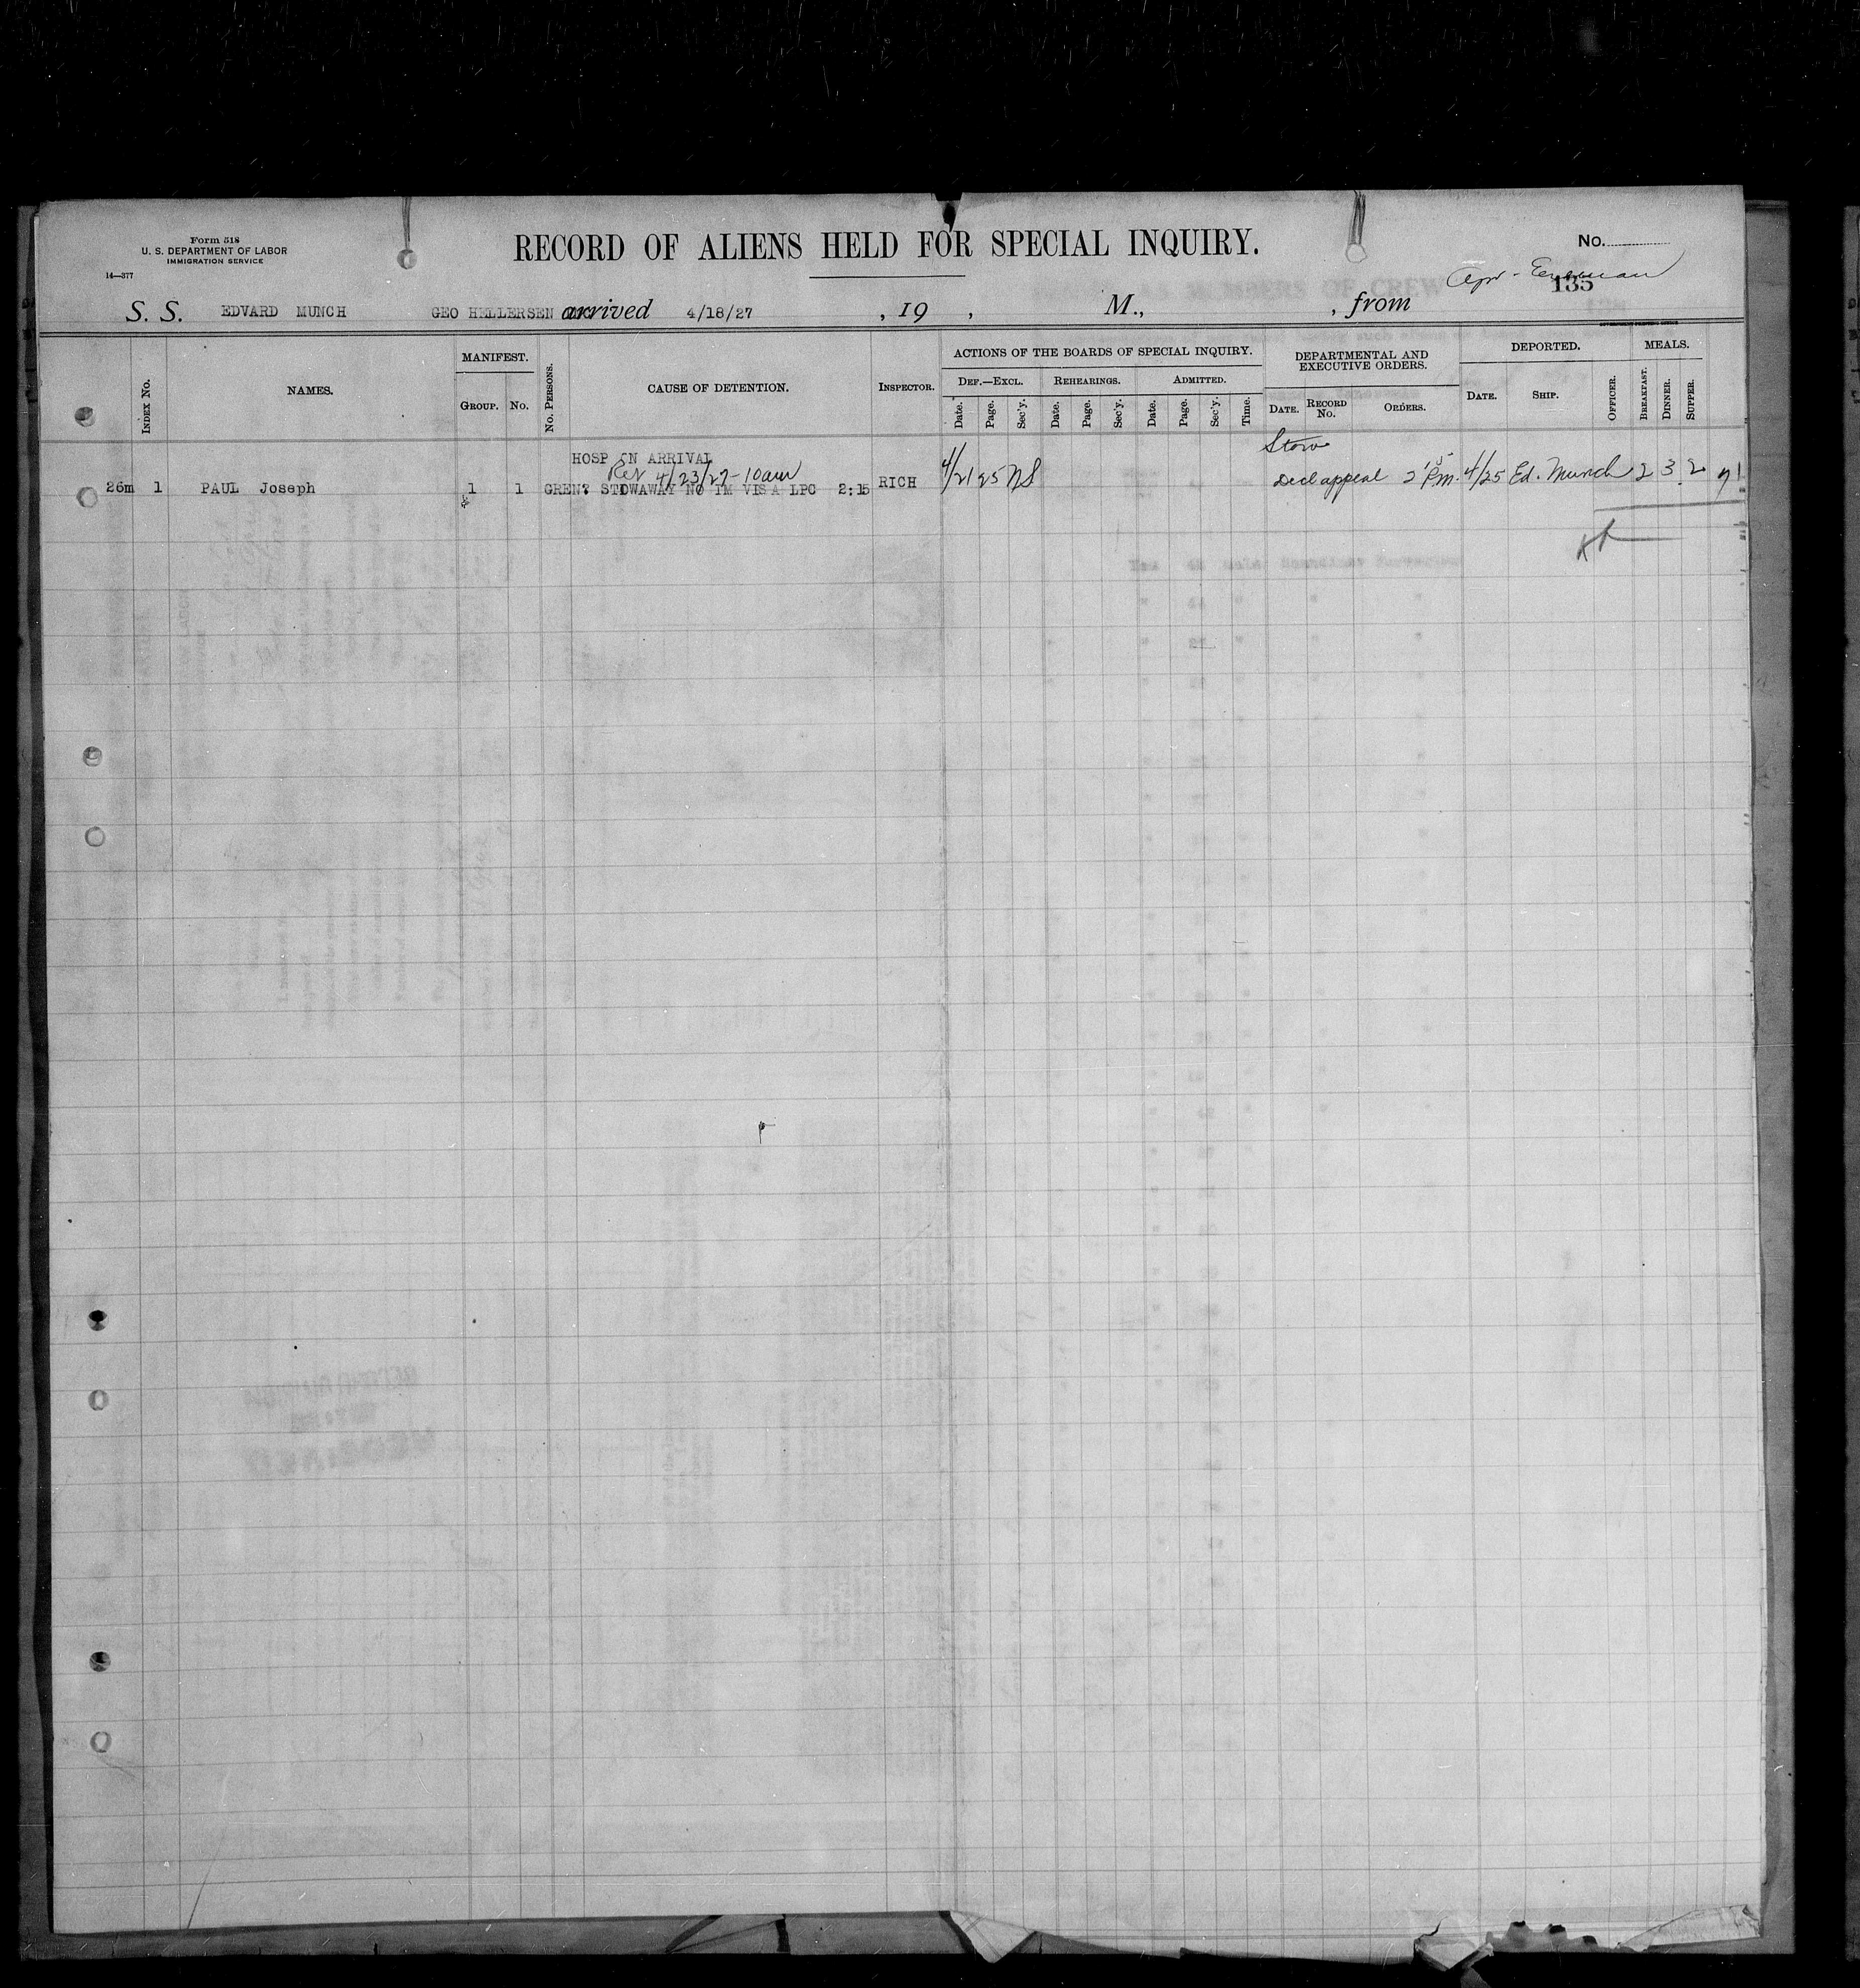 Form 518
U. S. DEPARTMENT OF LABOR
IMMIGRATION SERVICE
14—377
RECORD OF ALIENS HELD FOR SPECIAL INQUIRY.
No.
135
S. S. EDVARD MUNCH GEO HELLERSEN arrived 4/18/27 , 19 , M., , from
INDEX No. NAMES. MANIFEST. GROUP. No. No. PERSONS. CAUSE OF DETENTION. INSPECTOR.
ACTIONS OF THE BOARDS OF SPECIAL INQUIRY.
DEF.—EXCL. REHEARINGS. ADMITTED.
Date. Page. Sec'y. Date. Page. Sec'y. Date. Page. Sec'y. Time.
DEPARTMENTAL AND EXECUTIVE ORDERS.
DATE. RECORD No. ORDERS.
DEPORTED.
DATE. SHIP. OFFICER.
MEALS.
BREAKFAST. DINNER. SUPPER.
Stow
HOSP ON ARRIVAL
Rel 4/23/27-10am
26m 1 PAUL Joseph 1 1 STOWAWAY NO IM VISA LPC 2:15 RICH 4/21 25 NS Decl appeal 2 15 Pm. 4/25 Ed. Munch 2 3 2